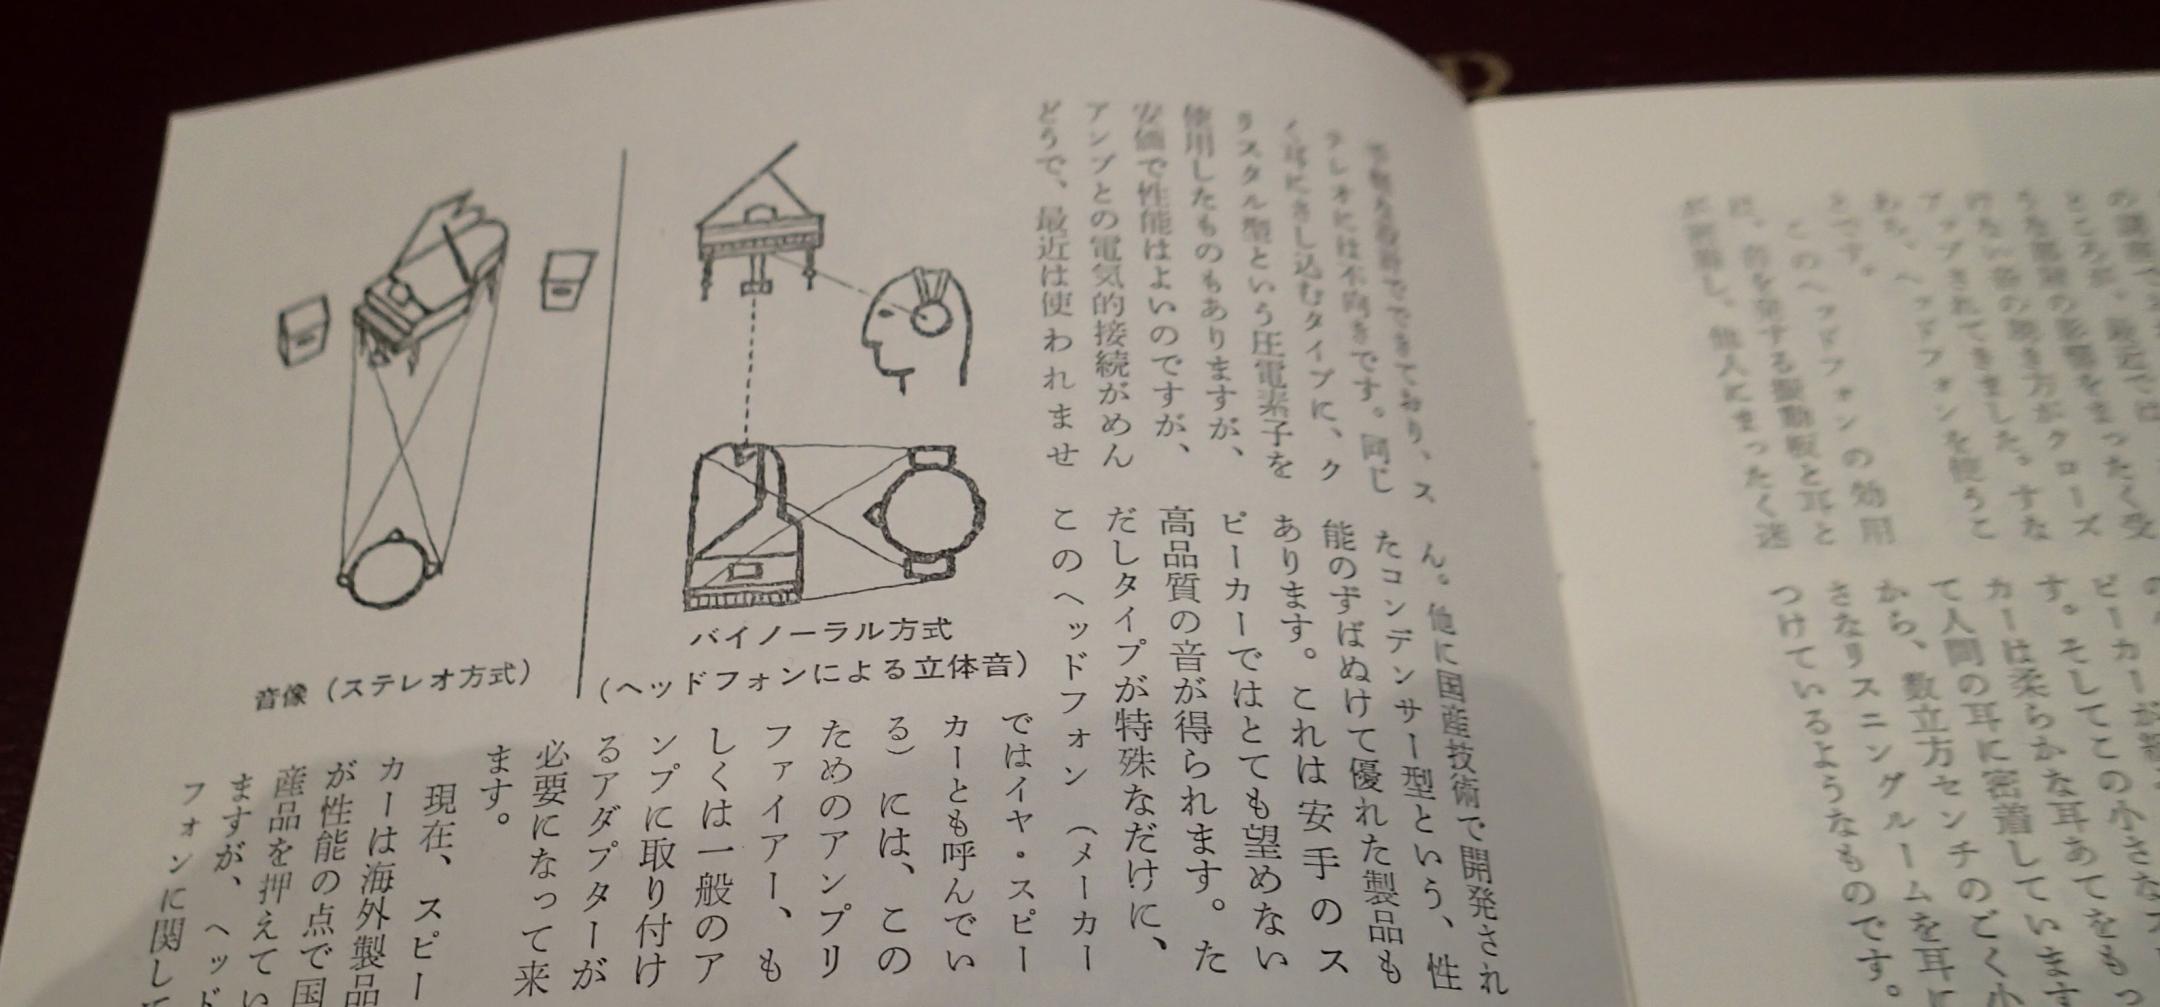 ところが、最近では
うな部屋の影響をまったく受
けない音の聴き方がクローズ
アップされてきました。すな
わち、ヘッドフォンを使うこ
とです。
このヘッドフォンの効用
は、音を発する振動板と耳と
が密接し、他人にまったく迷
ピーカーが
す。そしてこの小さなス
カーは柔らかな耳あてをもっ
て人間の耳に密着しています
から、数立方センチのごく小
さなリスニングルームを耳に
つけているようなものです。
でできており、ス
テレオには不向きです。同じ
く耳にさし込むタイプに、ク
リスタル型という圧電素子を
使用したものもありますが、
安価で性能はよいのですが、
アンプとの電気的接続がめん
どうで、最近は使われませ
ん。他に国産技術で開発され
たコンデンサー型という、性
能のずばぬけて優れた製品も
あります。これは安手のス
ピーカーではとても望めない
高品質の音が得られます。た
だしタイプが特殊なだけに、
このヘッドフォン（メーカー
ではイヤ・スピー
カーとも呼んでい
る）には、この
ためのアンプリ
ファイアー、も
しくは一般のア
ンプに取り付け
るアダプターが
必要になって来
ます。
現在、スピー
カーは海外製品
が性能の点で国
産品を押えてい
ますが、ヘッド
フォンに関して
バイノーラル方式
(ヘッドフォンによる立体音)
音像（ステレオ方式）